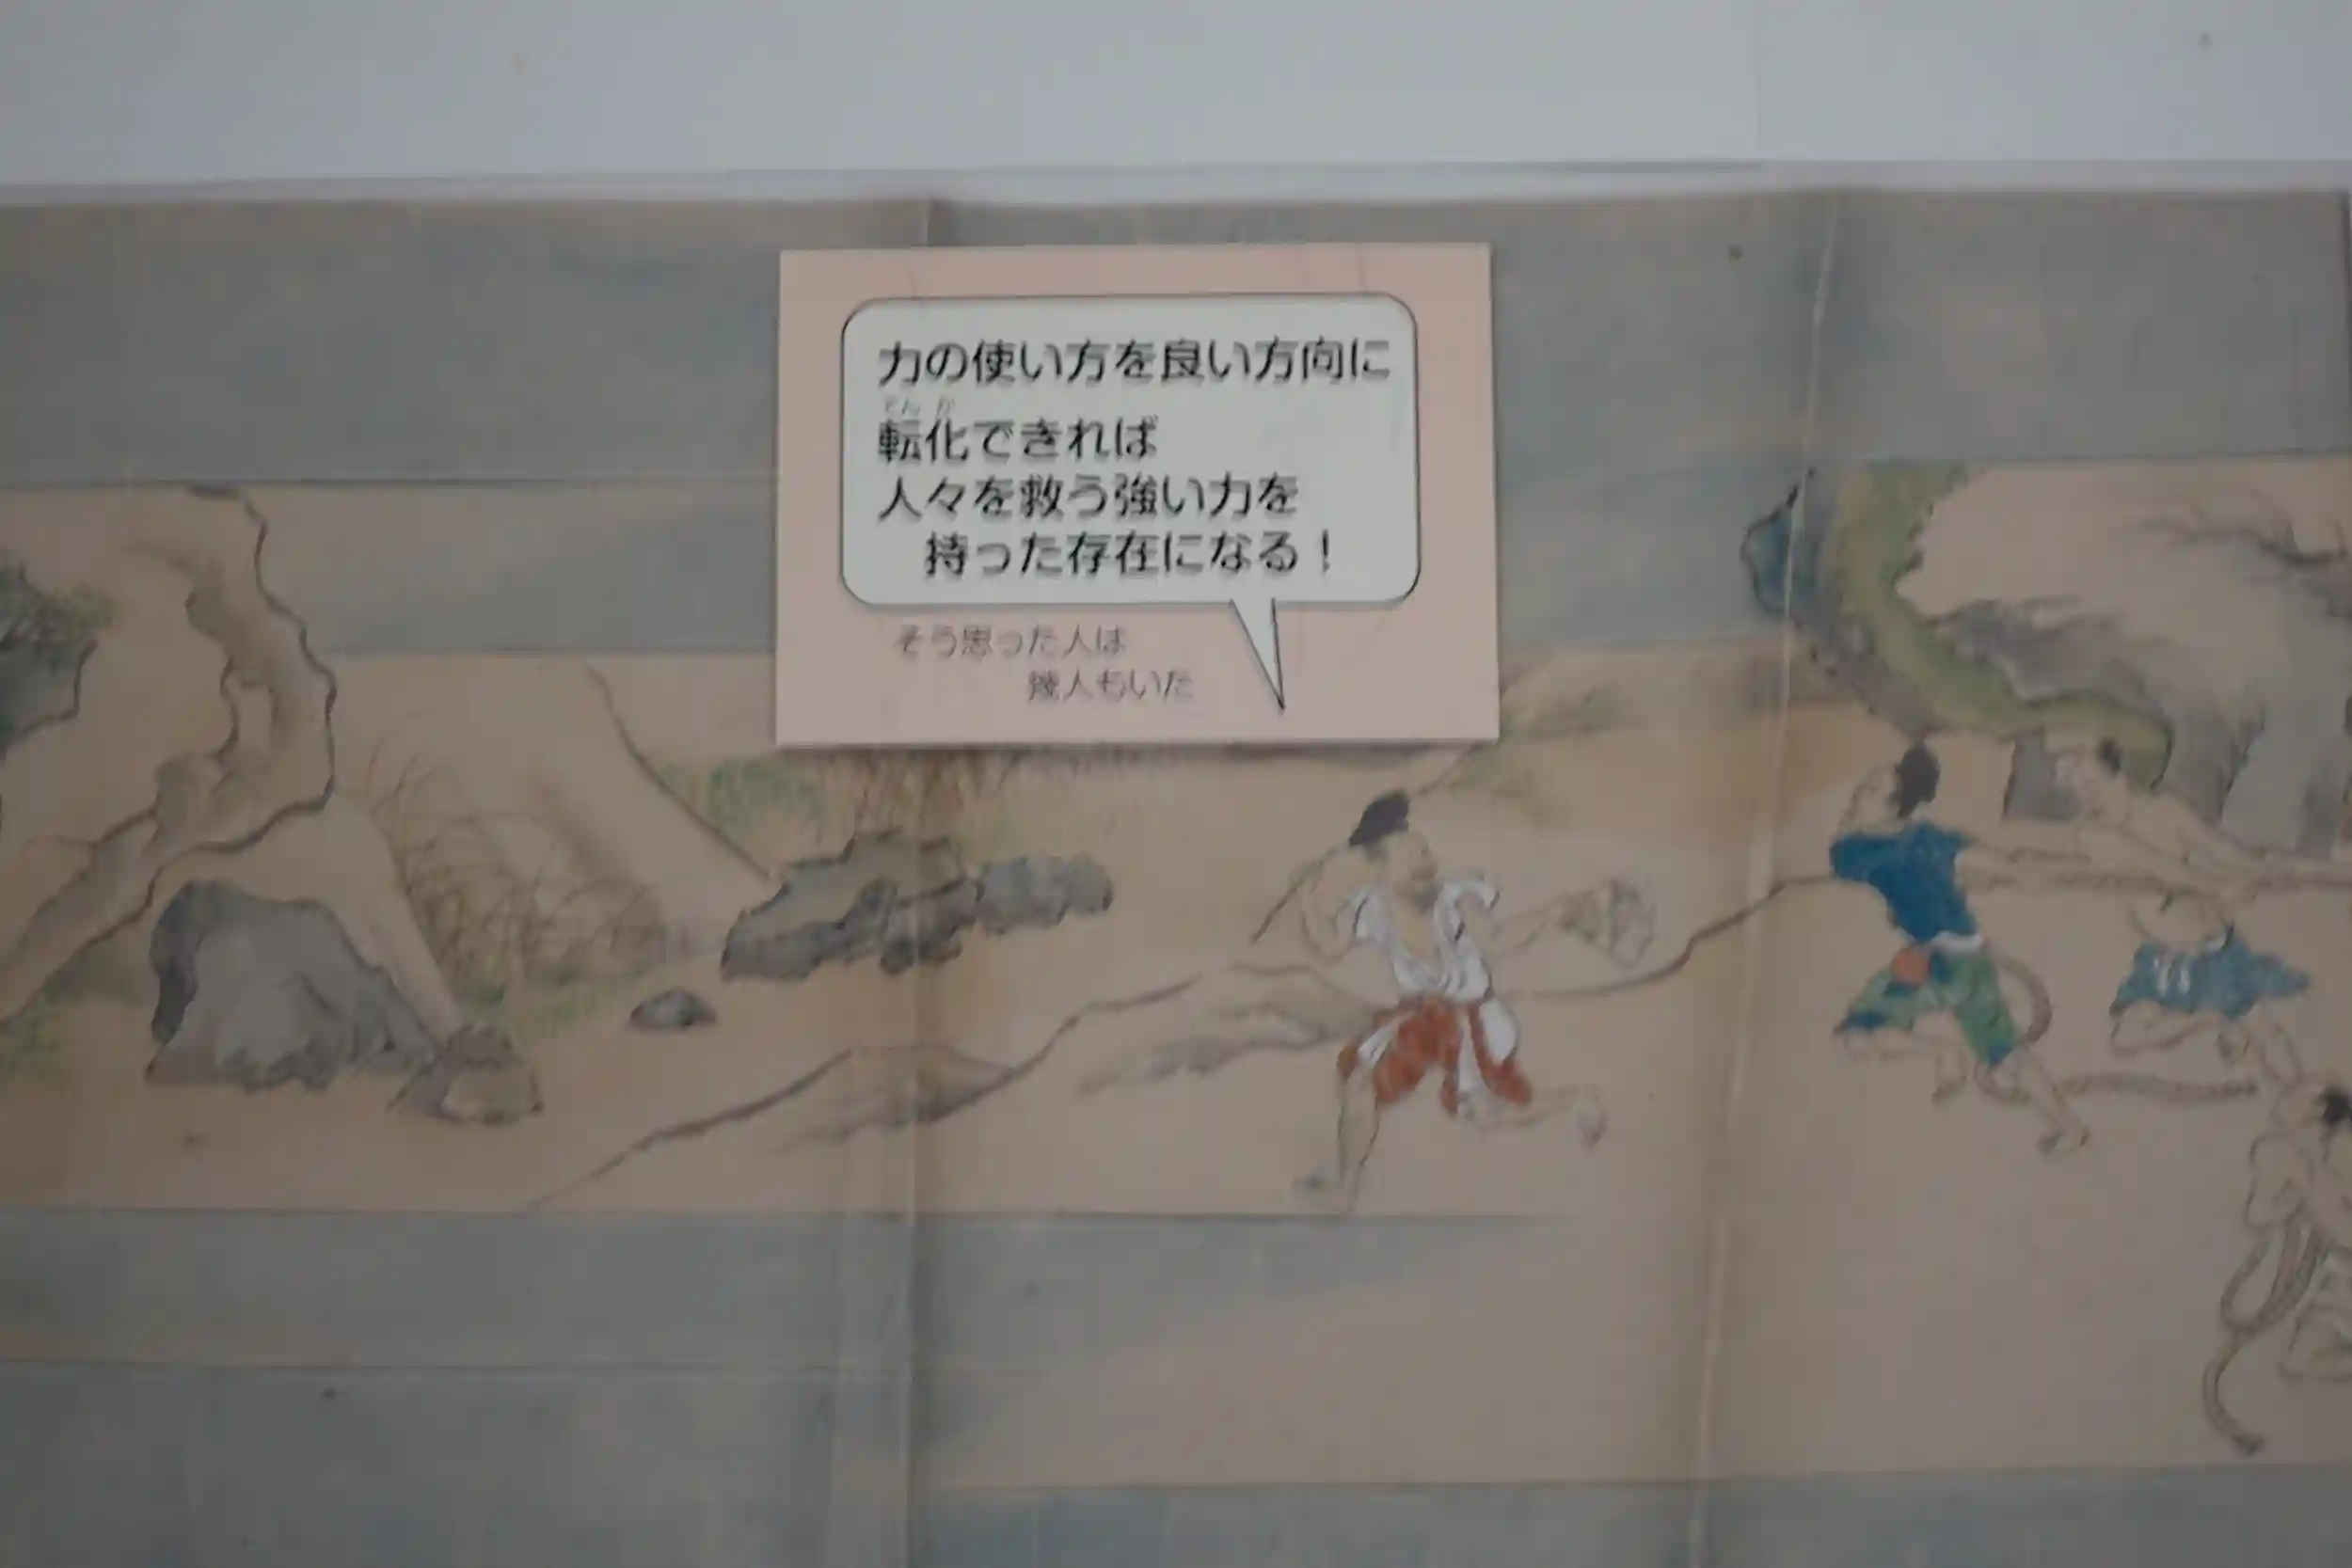 力の使い方を良い方向に
てんか
転化できれば
人々を救う強い力を
持った存在になる！
そう思った人は
幾人もいた